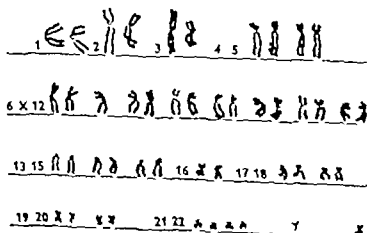 1 2 3 4 5
6 X 12
13 15 16 17 18
19 20 21 22 Y X